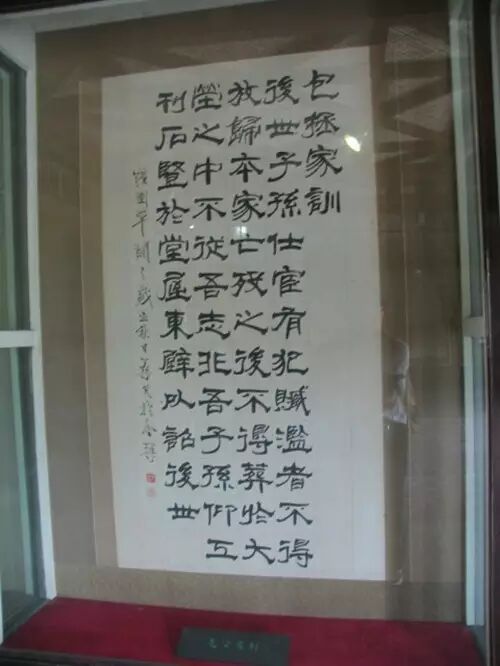 包拯家訓
後世子孫仕宦有犯贓濫者不得
放歸本家亡殁之後不得葬於大
塋之中不從吾志非吾子孫仰工
刊石竪於堂屋東壁以詔後世